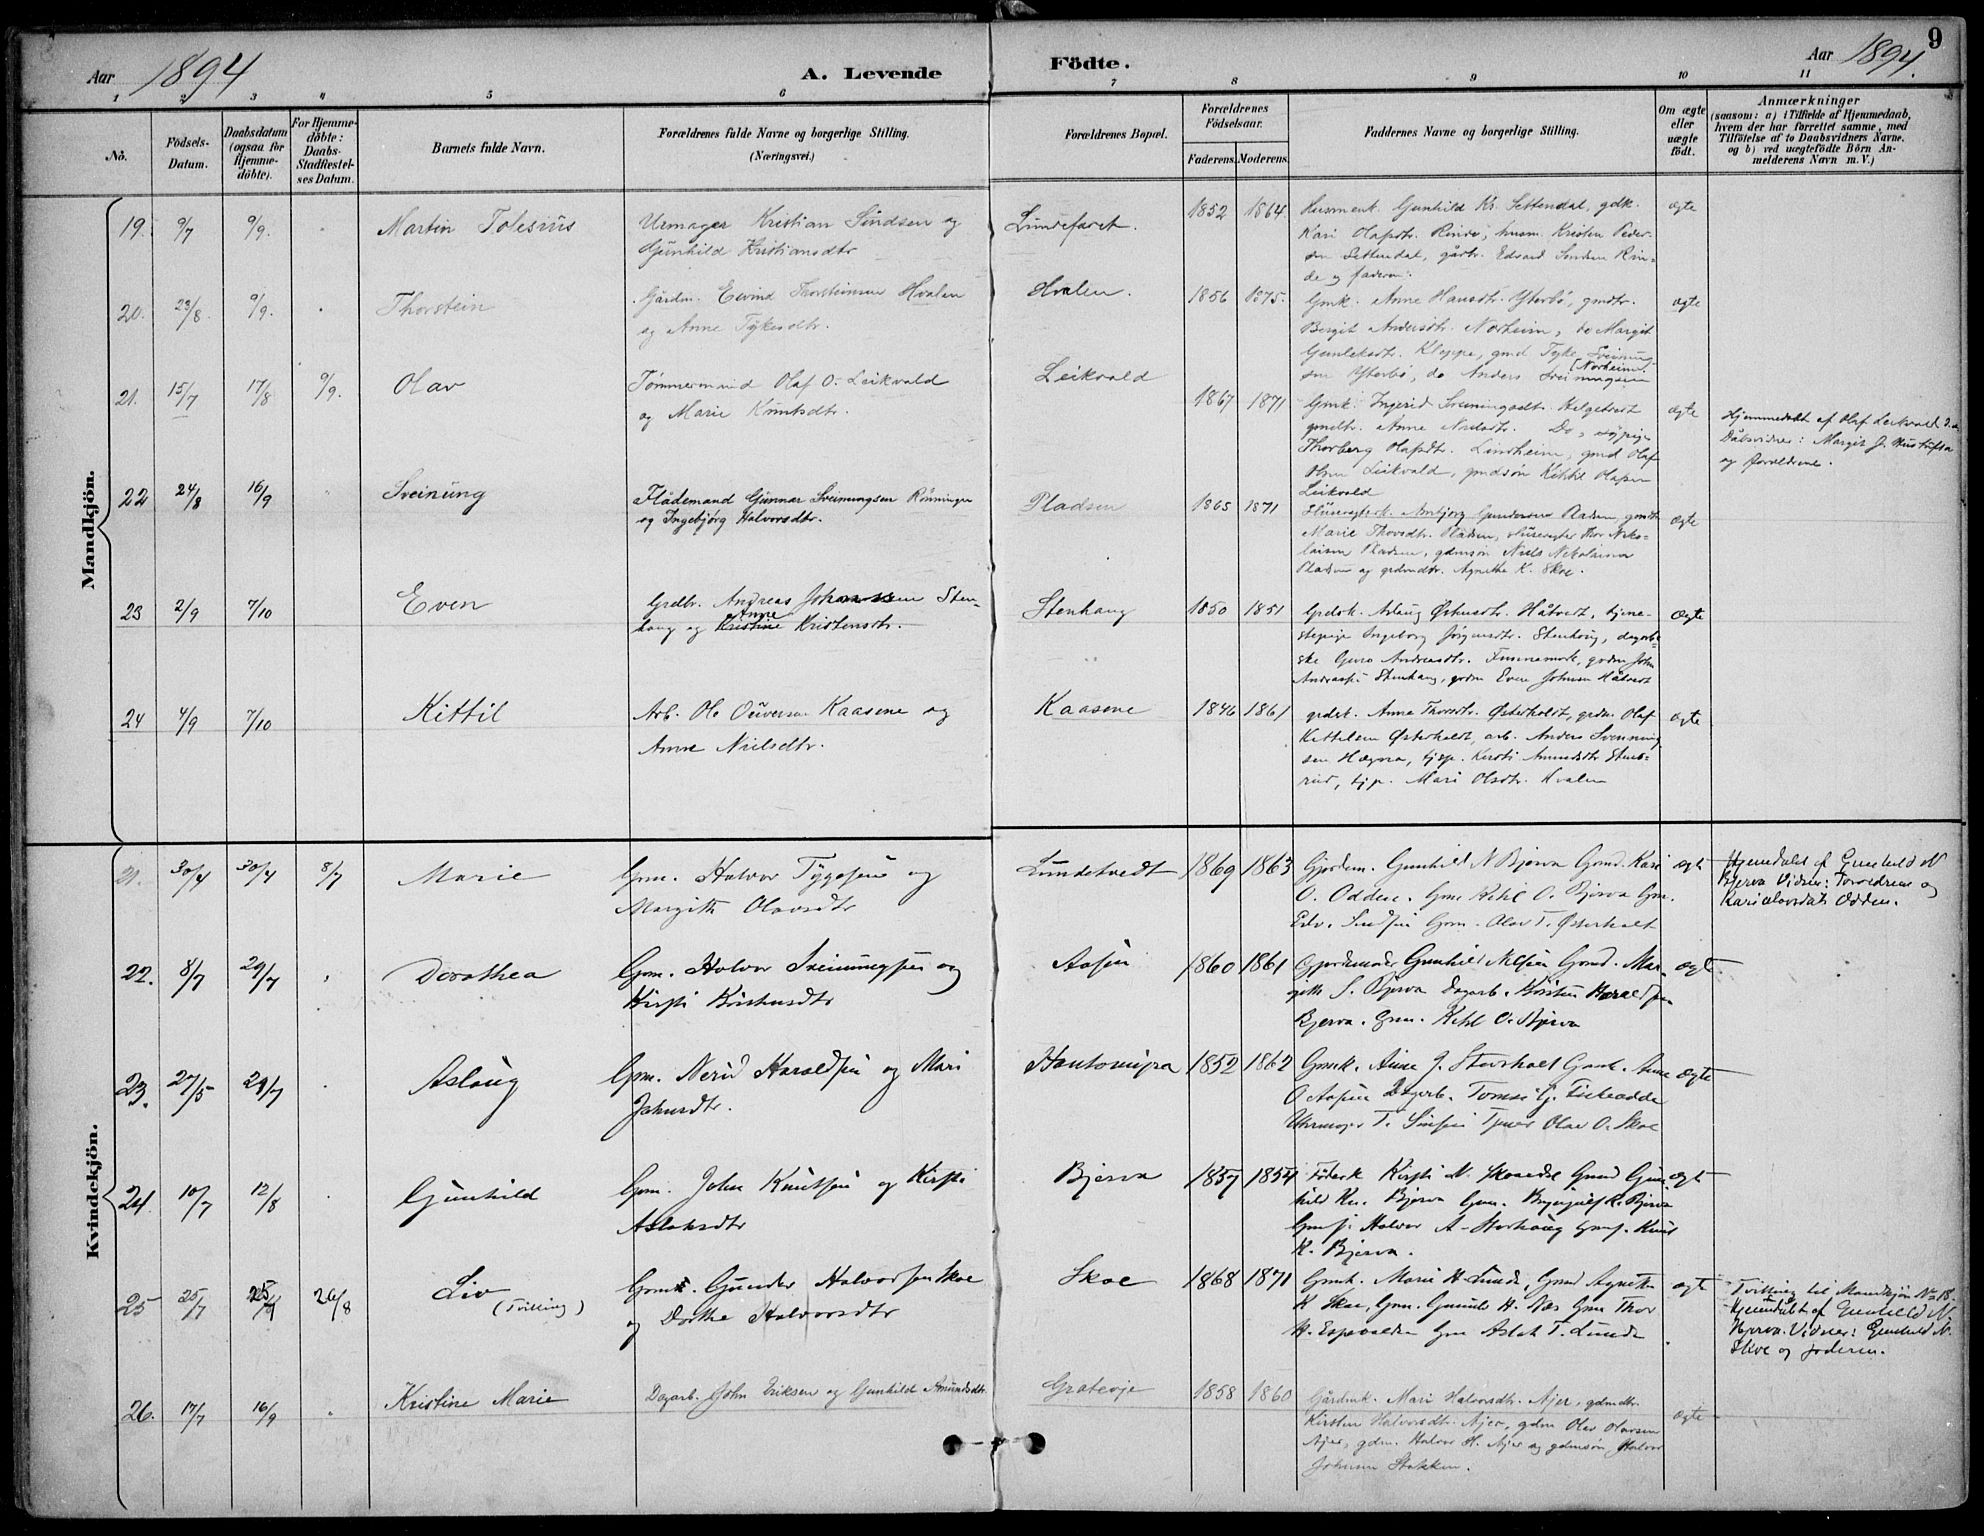 9
Aar 1894 A. Levende Födte. Aar 1894.
1 2 3 4 5 6 7 8 9 10 11
No.
Födsels-Datum.
Daabsdatum (ogsaa for Hjemme-döbte).
For Hjemme-döbte: Daabs-Stadfæstel-ses Datum.
Barnets fulde Navn.
Forældrenes fulde Navne og borgerlige Stilling. (Næringsvei.)
Forældrenes Bopæl.
Forældrenes Födselsaar.
Faderens. Moderens.
Faddernes Navne og borgerlige Stilling.
Om ægte eller uægte födt.
Anmærkninger
(saasom: a) i Tilfælde af Hjemmedaab, hvem der har forrettet samme, med Tilföielse af to Daabsvidners Navne. og b) ved uægtefödte Börn An-melderens Navn m. V.)
Mandkjön.
19. 9/7 9/9. Martin Tolesius
Urmager Kristian Sindsen og
Gunhild Kristiansdtr
Lundefaret. 1852 1864
Husmenk. Gunhild Kr. Settendal, gdk.
Kari Olafsdtr. Rinde, husm. Kristen Peder-
sen Settendal, gårbr. Edvard Sindsen Rin-
de og faderen.
ægte
20. 23/8. 9/9. Thorstein
Gårdm. Eivind Thorsteinsen Hvalen
og Anne Tykesdtr.
Hvalen. 1856 1875.
Gmk. Anne Hansdtr. Yterbö, gmdtr.
Bergit Andersdtr. Norheim, do Margit
Gunleksdtr. Kleppe, gmd Tyke Sveinung-
sen Yterbö, do Anders Sveinungsen
(Norheim.
ægte
21. 15/7 17/8 9/9. Olav
Tømmermand Olaf O. Leikvald
og Marie Knutsdtr.
Leikvald 1867 1871
Gmk. Ingerid Sveinungsdtr. Helgetveit
gmdtr. Anne Nielsdtr. Do,
Thorberg Olafsdtr. Lindheim, gmd Olaf
Olsen Leikvald, gmdsøn Kittil Olafsen
Leikvald
ægte
Hjemmedøbt af Olaf Leikvald
Dåbsvidner: Margit J.
og forældrene.
22 24/8 16/9 Sveinung
Flådemand Gunnar Sveinungsen Rönningen
og Ingebjørg Halvorsdtr.
Pladsen 1865 1871
Marie Thorsdtr. Pladsen, Thor Niko-
laisen Pladsen, gdmsøn Niels Nikolaisen
Pladsen og grdmdtr. Agnethe K. Skoe.
ægte
23 2/9 7/10 Even
Grdbr. Andreas Johannssen Sten-
haug og Kristine Anne Kristensdtr.
Stenhaug 1850 1851
Grdbk. Aslaug Håtveit, tjene-
stepige Ingeborg Jørgensdtr. Stenhaug,
ske Guro Andreasdtr. grdm John
Andreas. Stenhaug, grdm Even Johnsen Håtveit
ægte
24 4/9 7/10 Kittil
Arb. Ole Kaasene og
Anne Nielsdtr.
Kaasene 1846 1861
grdbk. Anne Thorsdtr. Østerholdt, grdm. Olaf
Kittelsen Østerholdt, arb. Anders Svenning-
sen Hægna, tjp. Kirsti Amundsdtr
tjp. Mari Olsdtr. Hvalen
ægte
Kvindekjön.
21. 30/4 30/4 8/7 Marie
Gm. Halvor Tygesen og
Margith Olavsdtr
Lundetvedt 1869 1863
Gjordem. Gunhild N Bjerva Gmd. Kari
O. Odden. Gm Ketil O. Bjerva Gm.
Edv. Sindsen Gm. Olav T. Østerholt
ægt
Hjemdøbt af Gunhild N
Bjerva Vidner: Forældrene og
Kari Olavsdatr Odden.
22. 8/7 29/7 Dorothea
Gm. Halvor Sveinungsen og
Kirsti Kristensdtr
Aasen 1860 1861
Gjordemoder Gunhild Nilsen Gmd. Mar-
gith S. Bjerva Dagarb. Kristen Haraldsen
Bjerva. Gm. Ketil O. Bjerva
ægt
23. 27/5 29/7 Aslaug
Gm. Nerid Haraldsen og Mari
Johnsdtr.
1852 1862
Gmk. Anne J. Storholt Gmk. Anne
O Aasen Dagarb. Tomas G.
Uhrmager T. Sinsen Tjener Olav O. Skoe
ægte
24. 10/7 12/8 Gunhild
Gm. John Knutsen og Kirsti
Aslaksdtr
Bjerva 1857 1854
Føderk Kirsti N. Gmd Gun
hild Kn. Bjerva Gm. Brynjulf K. Bjerva
Gms. Halvor A. Storhaug Gms. Knut
K. Bjerva.
ægt
25 25/7 25/7 26/8 Liv
(Tvilling)
Gm. Gunder Halvorsen Skoe
og Dorthe Halvorsdtr
Skoe 1868 1871
Gmk. Marie H Lunde, Gmd Agnethe
K Skoe, Gm. Gunder H. Næs Gm Thor
H. Espevalden Gm Aslak T. Lunde
ægt
Tvilling til Mandkjön No 18.
Hjemdøbt af Gunhild N
Bjerva. Vidner: Gunhild N.
Skoe og faderen.
26. 17/7 16/9 Kristine Marie
Dagarb. John Eriksen og Gunhild Amundsdtr.
Grateoje 1858 1860
Gårdmk. Mari Halvorsdtr. Ajer, gdmdtr.
Kirsten Halvorsdtr. Ajer, gdm Olav Olavsen
Ajer, gdm. Halvor H. Ajer og gdmsön Halvor
Johnsen Stokken.
ægte